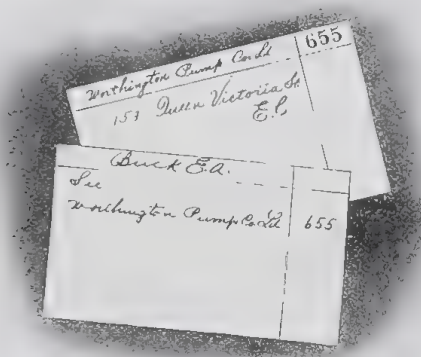 Worthington Pump Co Ld 655
153 Queen Victoria St.
E.C.
Buck E.A.
See
Worthington Pump Co Ld 655